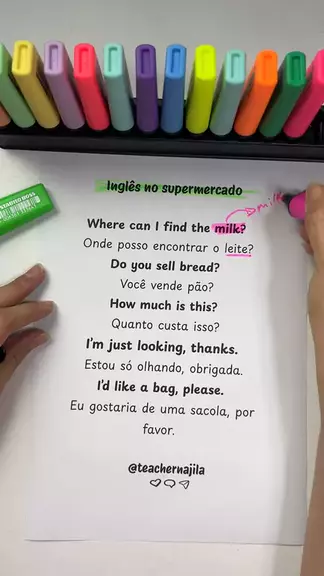 STABILO BOSS
Inglês no supermercado
Where can I find the milk?
milk
Onde posso encontrar o leite?
Do you sell bread?
Você vende pão?
How much is this?
Quanto custa isso?
I'm just looking, thanks.
Estou só olhando, obrigada.
I'd like a bag, please.
Eu gostaria de uma sacola, por
favor.
@teachernajila